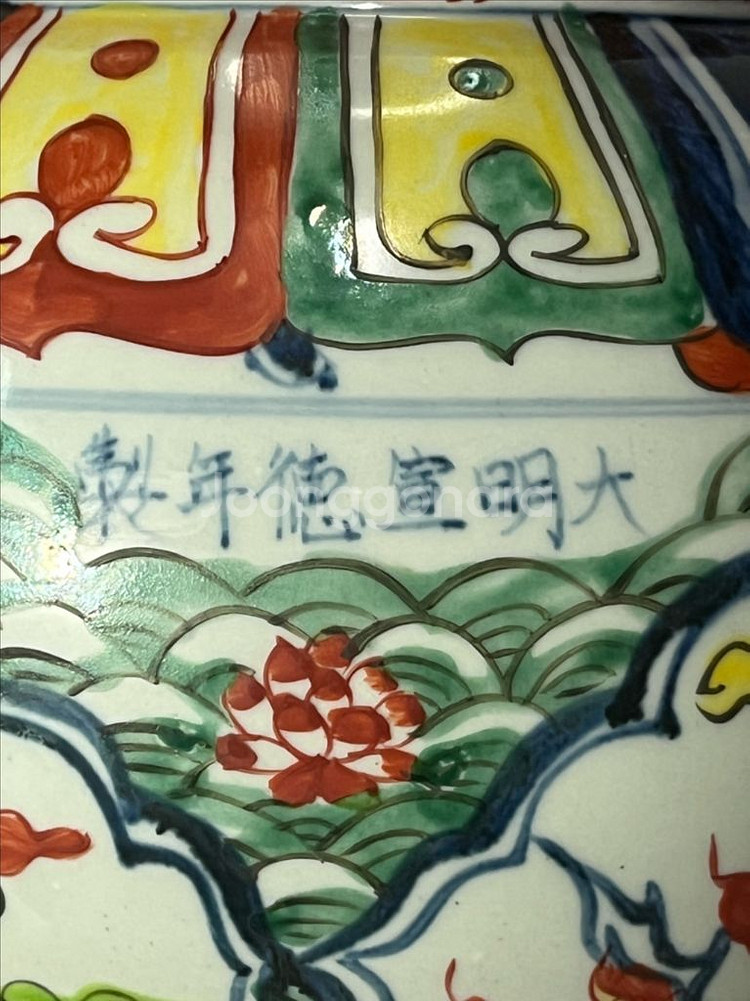 大明宣德年製
Joonggonara